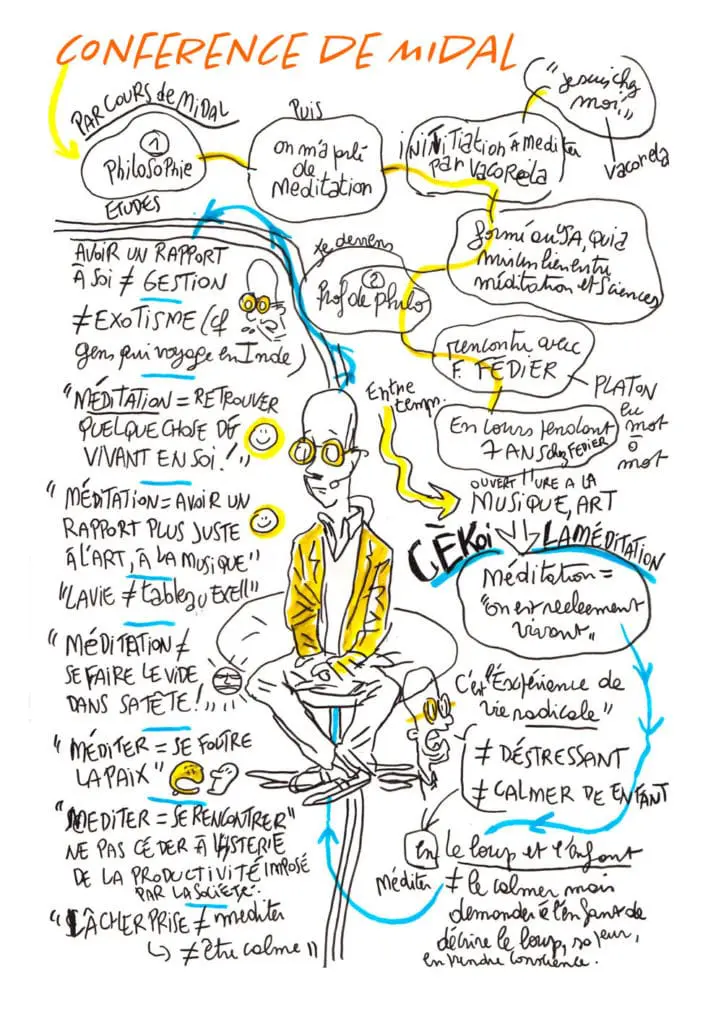 CONFERENCE DE MIDAL
PARCOURS de MIDAL
1
PHILOSOPHIE
ETUDES
PUIS
on m'a parlé
de
MEDITATION
ININTIATION À MEDITER
PAR VACORELA
"Je suis chez
moi"
VACORELA
formé au USA, qui a
mis un lien entre
méditation et Sciences
Je deviens
2
Prof de philo
rencontre avec
F. FEDIER
PLATON
EN
mot
à
mot
En cours pendant
7 ANS chez FEDIER
Entre
temps.
OUVERTTURE A LA
MUSIQUE, ART
CÈKOI
LA MÉDITATION
Méditation =
"on est reelement
vivant"
C'est "l'Expérience de
vie radicale"
≠ DÉSTRESSANT
≠ CALMER DE ENFANT
le loup et l'enfant
Méditer ≠ le calmer mais
demander à l'enfant de
décrire le loup, sa peur,
en prendre conscience.
AVOIR UN RAPPORT
À SOI ≠ GESTION
≠ EXOTISME (cf
gens qui voyage en Inde)
"MÉDITATION = RETROUVER
QUELQUE CHOSE DE
VIVANT EN SOI !"
"MÉDITATION = AVOIR UN
RAPPORT PLUS JUSTE
À L'ART, À LA MUSIQUE"
"LA VIE ≠ tableau EXELL"
"MÉDITATION ≠
SE FAIRE LE VIDE
DANS SA TÊTE !"
"MÉDITER = SE FOUTRE
LA PAIX"
"MEDITER = SE RENCONTRER"
NE PAS CÉDER À L'HYSTERIE
DE LA PRODUCTIVITÉ IMPOSÉ
PAR LA SOCIETE.
"LÂCHER PRISE ≠ mediter
≠ être calme"